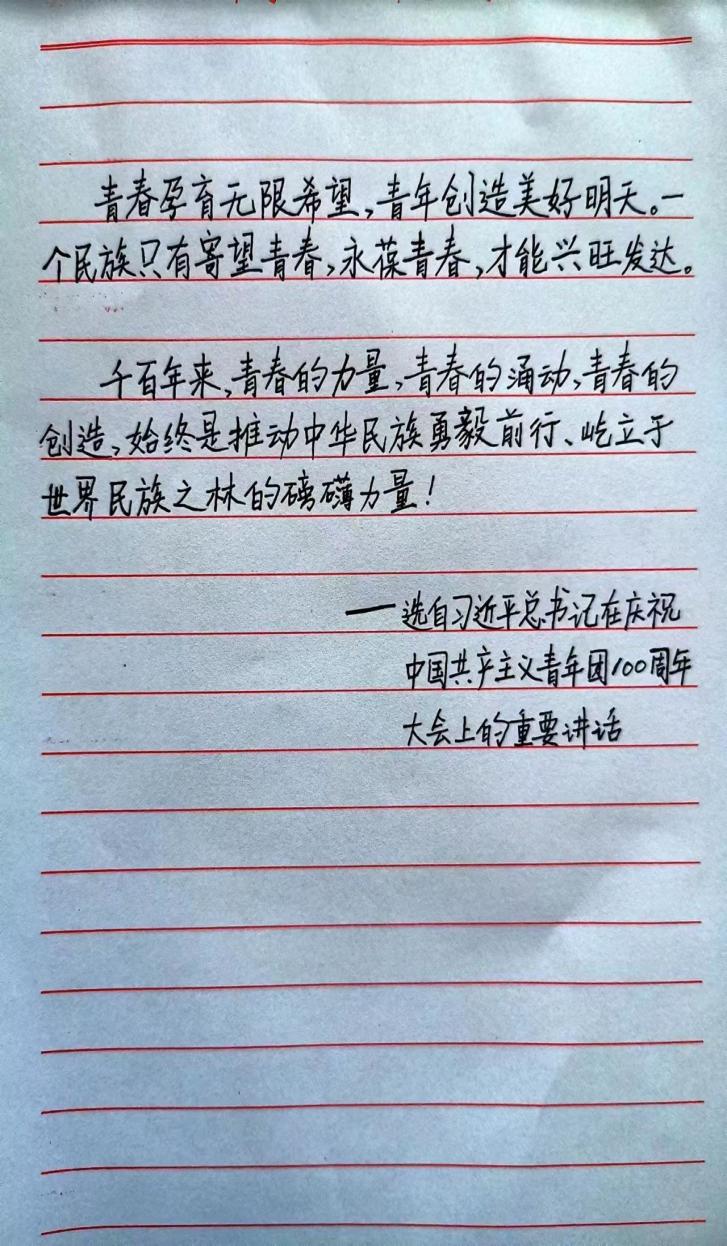 青春孕育无限希望,青年创造美好明天。一
个民族只有寄望青春,永葆青春,才能兴旺发达。
千百年来,青春的力量,青春的涌动,青春的
创造,始终是推动中华民族勇毅前行、屹立于
世界民族之林的磅礴力量!
——选自习近平总书记在庆祝
中国共产主义青年团100周年
大会上的重要讲话